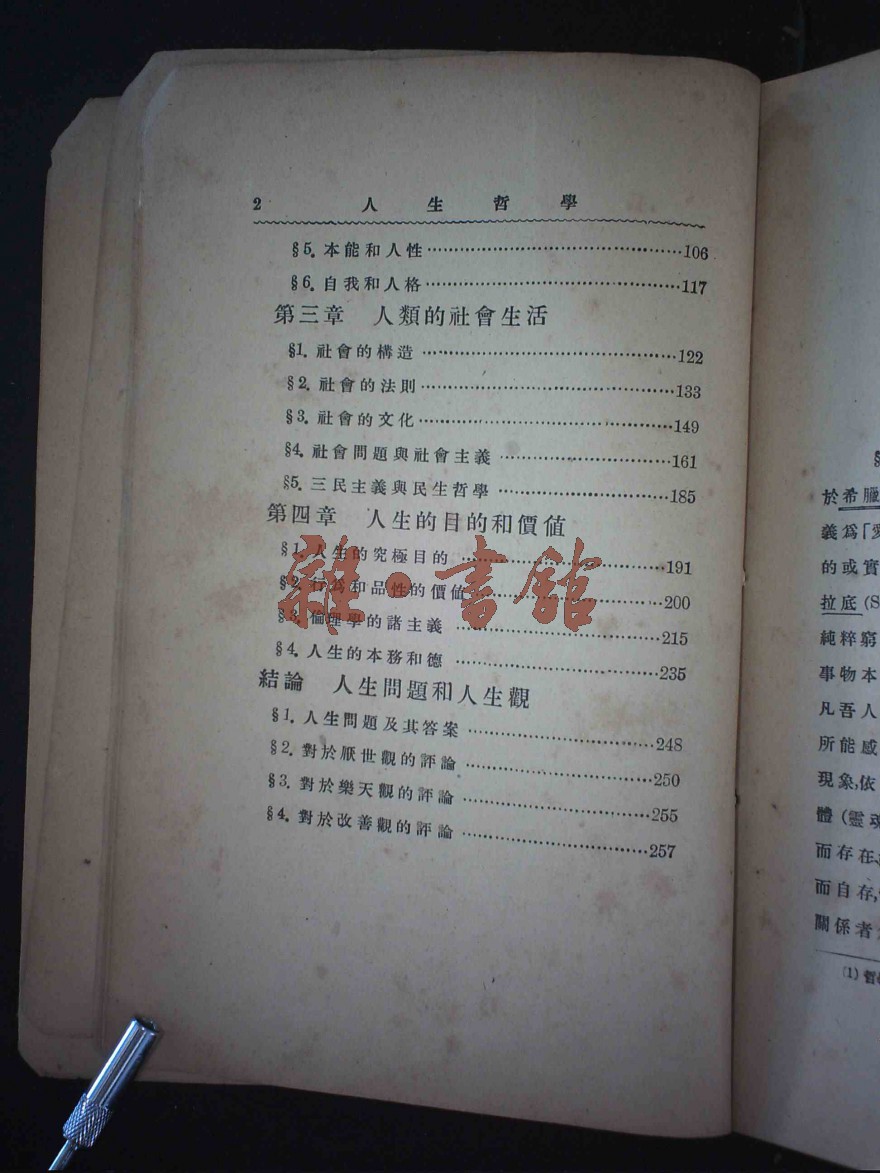 2 人生哲學
§5. 本能和人性……106
§6. 自我和人格……117
第三章 人類的社會生活
§1. 社會的構造……122
§2. 社會的法則……133
§3. 社會的文化……149
§4. 社會問題與社會主義……161
§5. 三民主義與民生哲學……185
第四章 人生的目的和價値
§1. 人生的究極目的……191
§2. 行爲和品性的價値……200
§3. 倫理學的諸主義……215
§4. 人生的本務和德……235
結論 人生問題和人生觀
§1. 人生問題及其答案……248
§2. 對於厭世觀的評論……250
§3. 對於樂天觀的評論……255
§4. 對於改善觀的評論……257
雜·書館
§
於希臘
義爲「愛
的或實
拉底 (S
純粹窮
事物本
凡吾人
所能感
現象,依
體 (靈魂
而存在,
而自存,
關係者
(1) 哲